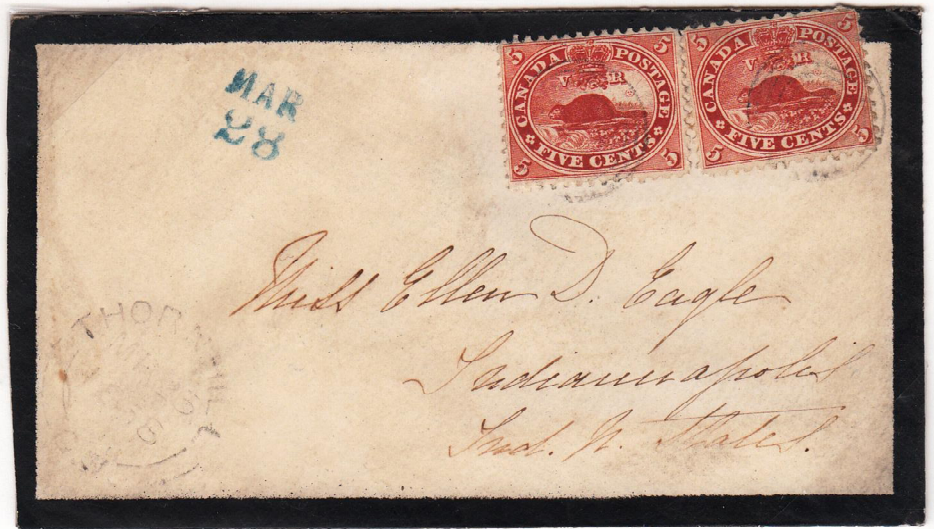 MAR
28
5 5
CANADA POSTAGE
V R
FIVE CENTS
5 5
5 5
CANADA POSTAGE
V R
FIVE CENTS
5 5
Miss Ellen D. Eagle
Indiannapolis
Ind. N. States.
THORNHILL